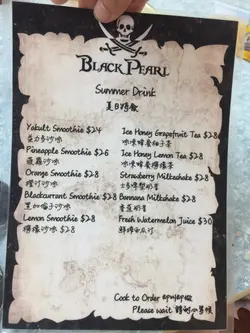 BLACK PEARL
Summer Drink
夏日特飲
Yakult Smoothie $24
益力多沙冰
Pineapple Smoothie $26
菠蘿沙冰
Orange Smoothie $28
橙汁沙冰
Blackcurrant Smoothie $28
黑加侖子沙冰
Lemon Smoothie $28
檸檬沙冰
Ice Honey Grapefruit Tea $28
冰凍蜂蜜柚子茶
Ice Honey Lemon Tea $28
冰凍蜂蜜檸檬茶
Strawberry Milkshake $28
士多啤梨奶昔
Bannana Milkshake $28
香蕉奶昔
Fresh Watermelon Juice $30
鮮榨西瓜汁
Cook to Order
Please wait